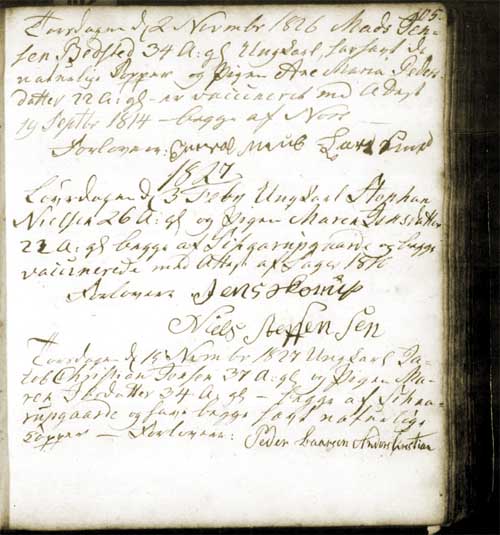 105.
Torsdagen d 2 Novembr 1826 Mads Jen-
sen Bodsted 34 A: gl Ungkarl, har havt de
naturlige Kopper og Pigen Ane Maria Peders-
datter 22 A: gl - er vaccineret med Attest
19 Septbr 1814 - begge af Nors
Forlovere:
1827
Løverdagen d 3 Feby Ungkarl Stephan
Nielsen 26 A: gl og Pigen Maren datter
22 A: gl begge af og begge
vaccinerede med Attest af 1816
Forlovere Jens
Niels Steffensen
Torsdagen d 15 Novembr 1827 Ungkarl Ja-
cob Christian Jensen 37 A: gl og Pigen Ma-
ren datter 34 A: gl - begge af
og have begge havt naturlige
Kopper - Forlovere: Peder Laursen Anders Christian